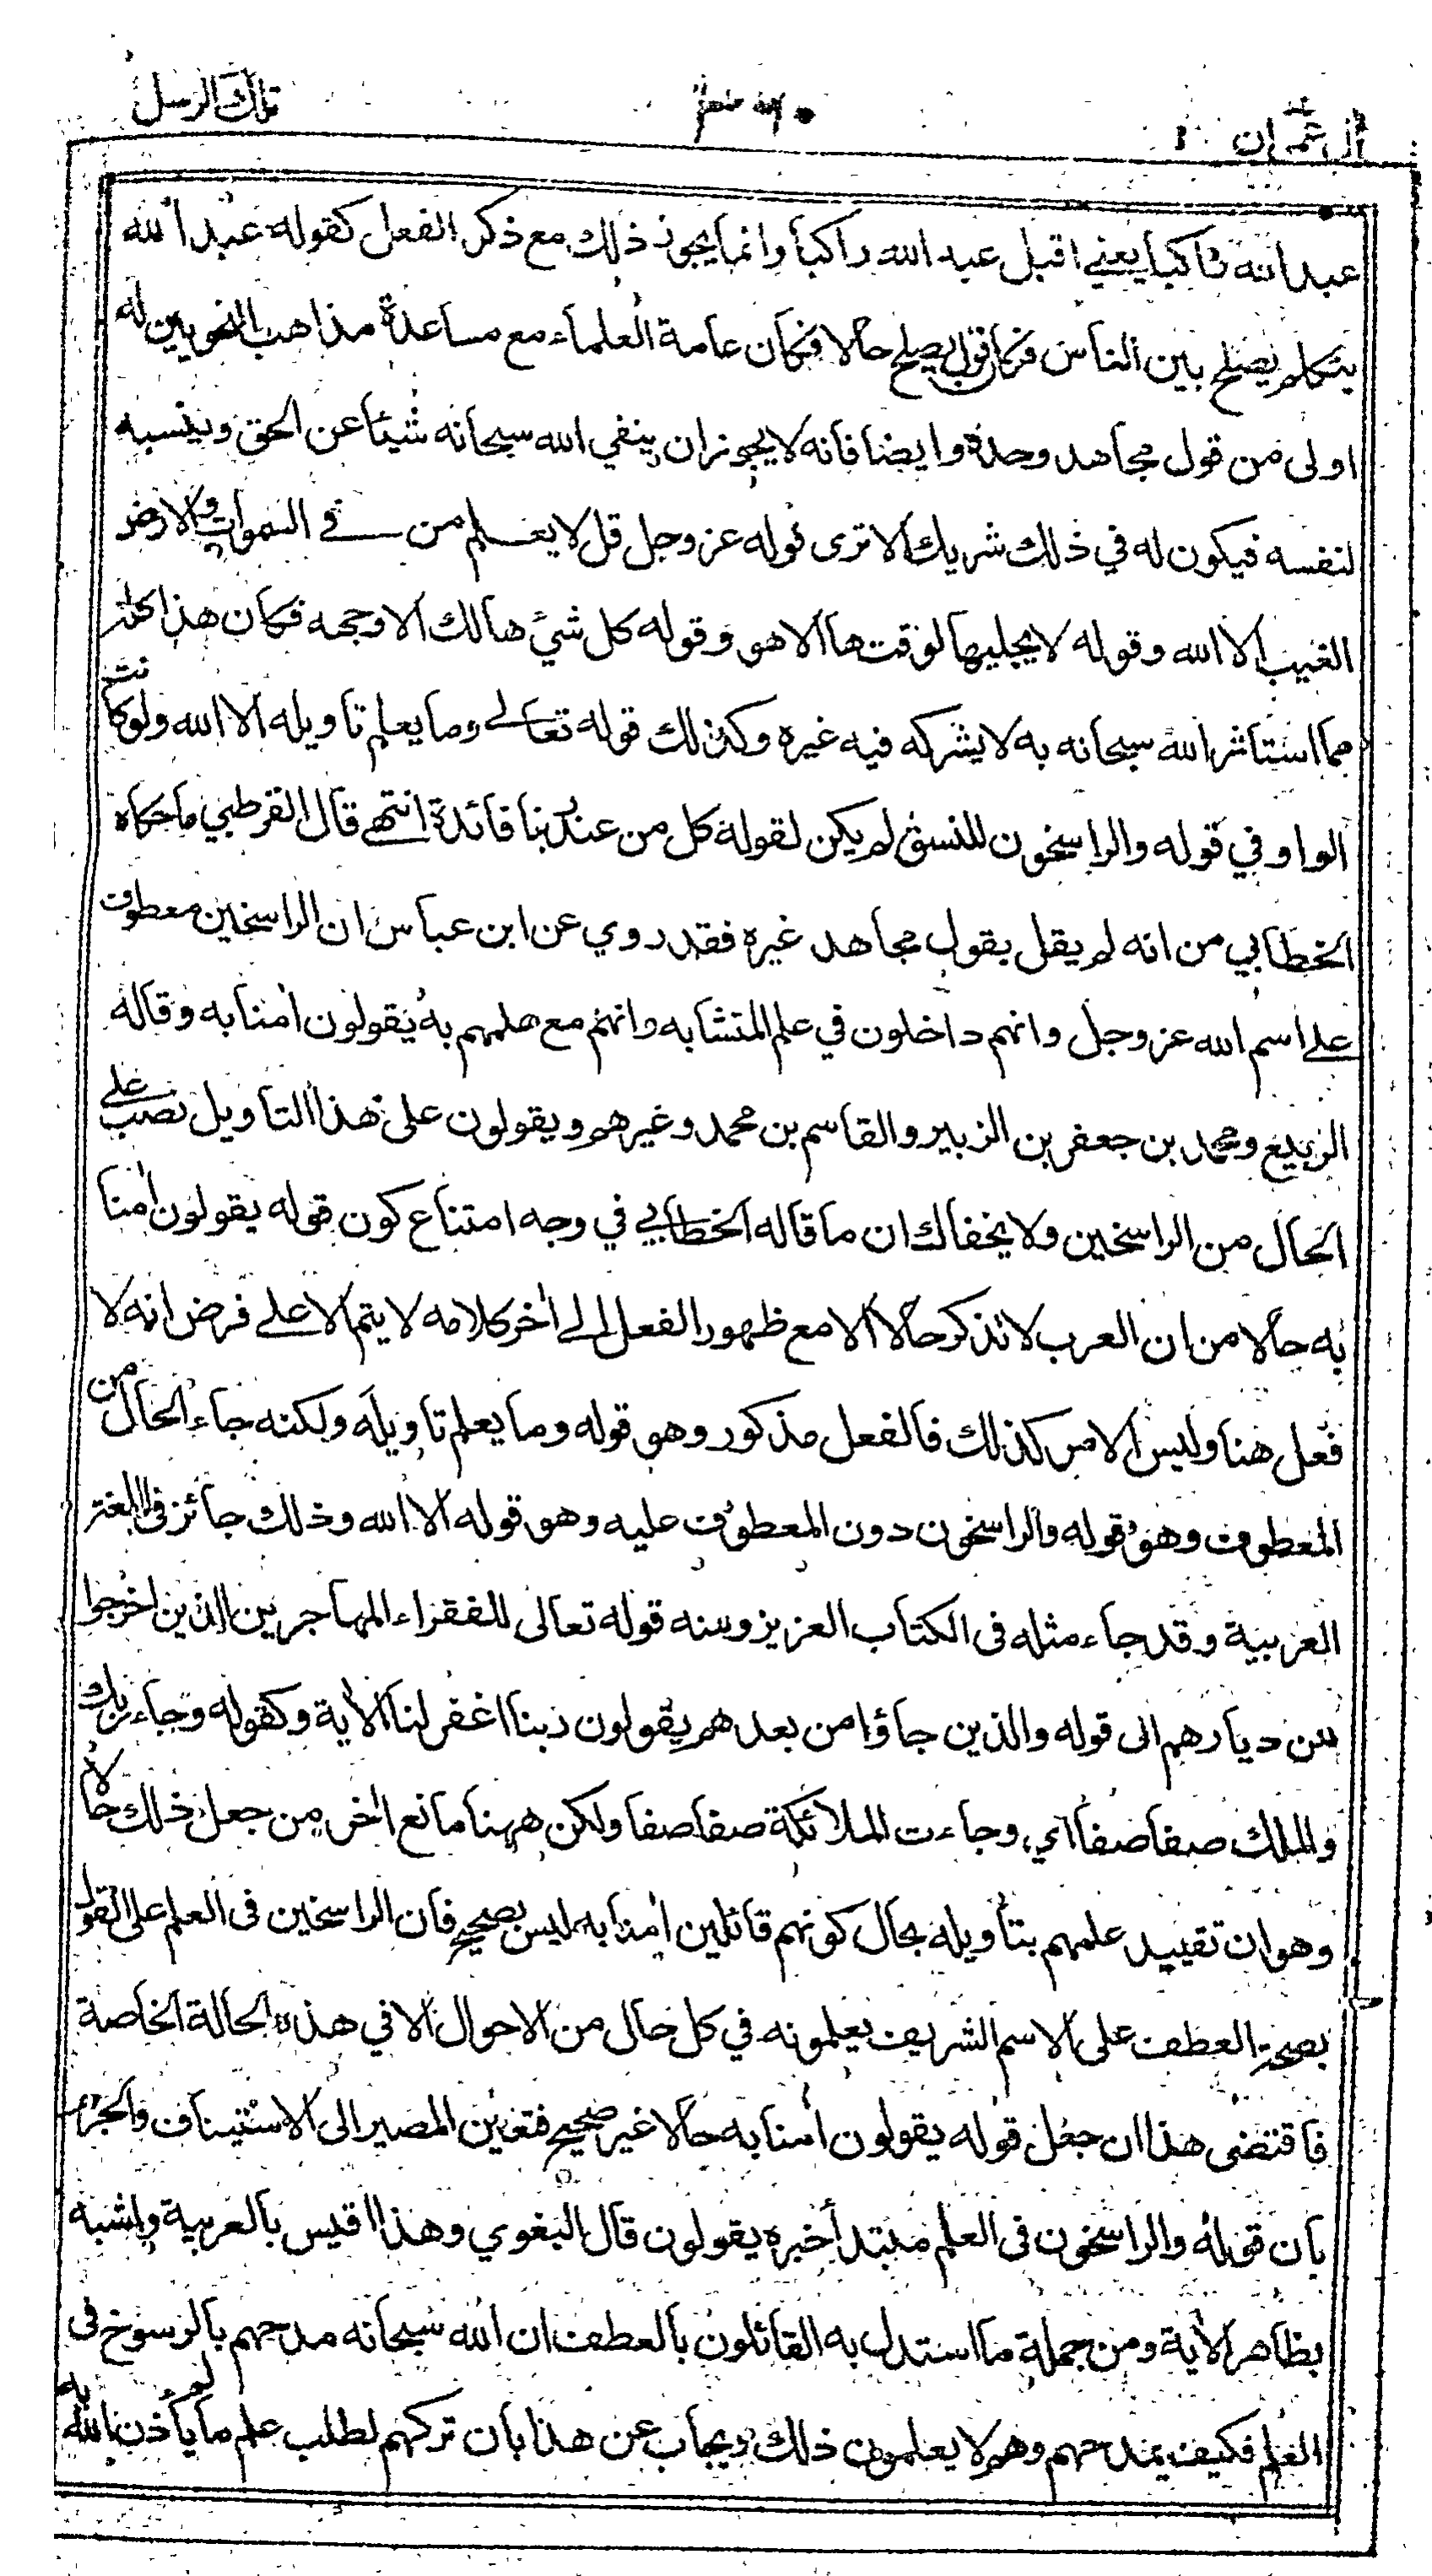 تلك الرسل
آل عمران ٣
عبد الله راكبا يعني اقبل عبد الله راكبا وانما يجوز ذلك مع ذكر الفعل كقوله عبد الله
يتكلم يصلح بين الناس فكان يصلح حالا فكان عامة العلماء مع مساعدة مذاهب النحويين له
اولى من قول مجاهد وحدة وايضا فانه لا يجوز ان ينفي الله سبحانه شيئا عن الحق وينسبه
لنفسه فيكون له في ذلك شريك الا ترى قوله عز وجل قل لا يعلم من في السموات والارض
الغيب الا الله وقوله لا يجليها لوقتها الا هو وقوله كل شيء هالك الا وجهه فكان هذا كله
مما استاثر الله سبحانه به لا يشركه فيه غيره وكذلك قوله تعالى وما يعلم تاويله الا الله ولو كانت
الواو في قوله والراسخون للنسق لم يكن لقوله كل من عند ربنا فائدة انتهى قال القرطبي ما حكاه
الخطابي من انه لم يقل بقول مجاهد غيره فقد روي عن ابن عباس ان الراسخين معطوف
على اسم الله عز وجل وانهم داخلون في علم المتشابه وانهم مع علمهم به يقولون امنا به وقاله
الربيع ومحمد بن جعفر بن الزبير والقاسم بن محمد وغيرهم ويقولون على هذا التاويل نصب على
الحال من الراسخين ولا يخفاك ان ما قاله الخطابي في وجه امتناع كون قوله يقولون امنا
به حالا من ان العرب لا تذكر حالا الا مع ظهور الفعل الى اخر كلامه لا يتم الا على فرض انه لا
فعل هنا وليس الامر كذلك فالفعل مذكور وهو قوله وما يعلم تاويله ولكنه جاء الحال من
المعطوف وهو قوله والراسخون دون المعطوف عليه وهو قوله الا الله وذلك جائز في اللغة
العربية وقد جاء مثله فى الكتاب العزيز ومنه قوله تعالى للفقراء المهاجرين الذين اخرجوا
من ديارهم الى قوله والذين جاؤا من بعدهم يقولون ربنا اغفر لنا الآية وكقوله وجاء ربك
والملك صفا صفا اي وجاءت الملائكة صفا صفا ولكن ههنا مانع اخر من جعل ذلك حالا
وهو ان تقييد علمهم بتأويله بحال كونهم قائلين امنا به ليس بصحيح فان الراسخين فى العلم على القول
بصحة العطف على الاسم الشريف يعلمونه في كل حال من الاحوال الا في هذه الحالة الخاصة
فاقتضى هذا ان جعل قوله يقولون امنا به حالا غير صحيح فتعين المصير الى الاستيناف والجزم
بان قوله والراسخون فى العلم مبتدأ خبره يقولون قال البغوي وهذا اقيس بالعربية واشبه
بظاهر الآية ومن جملة ما استدل به القائلون بالعطف ان الله سبحانه مدحهم بالرسوخ فى
العلم فكيف يمدحهم وهم لا يعلمون ذلك ويجاب عن هذا بان تركهم لطلب علم ما لم يأذن الله به